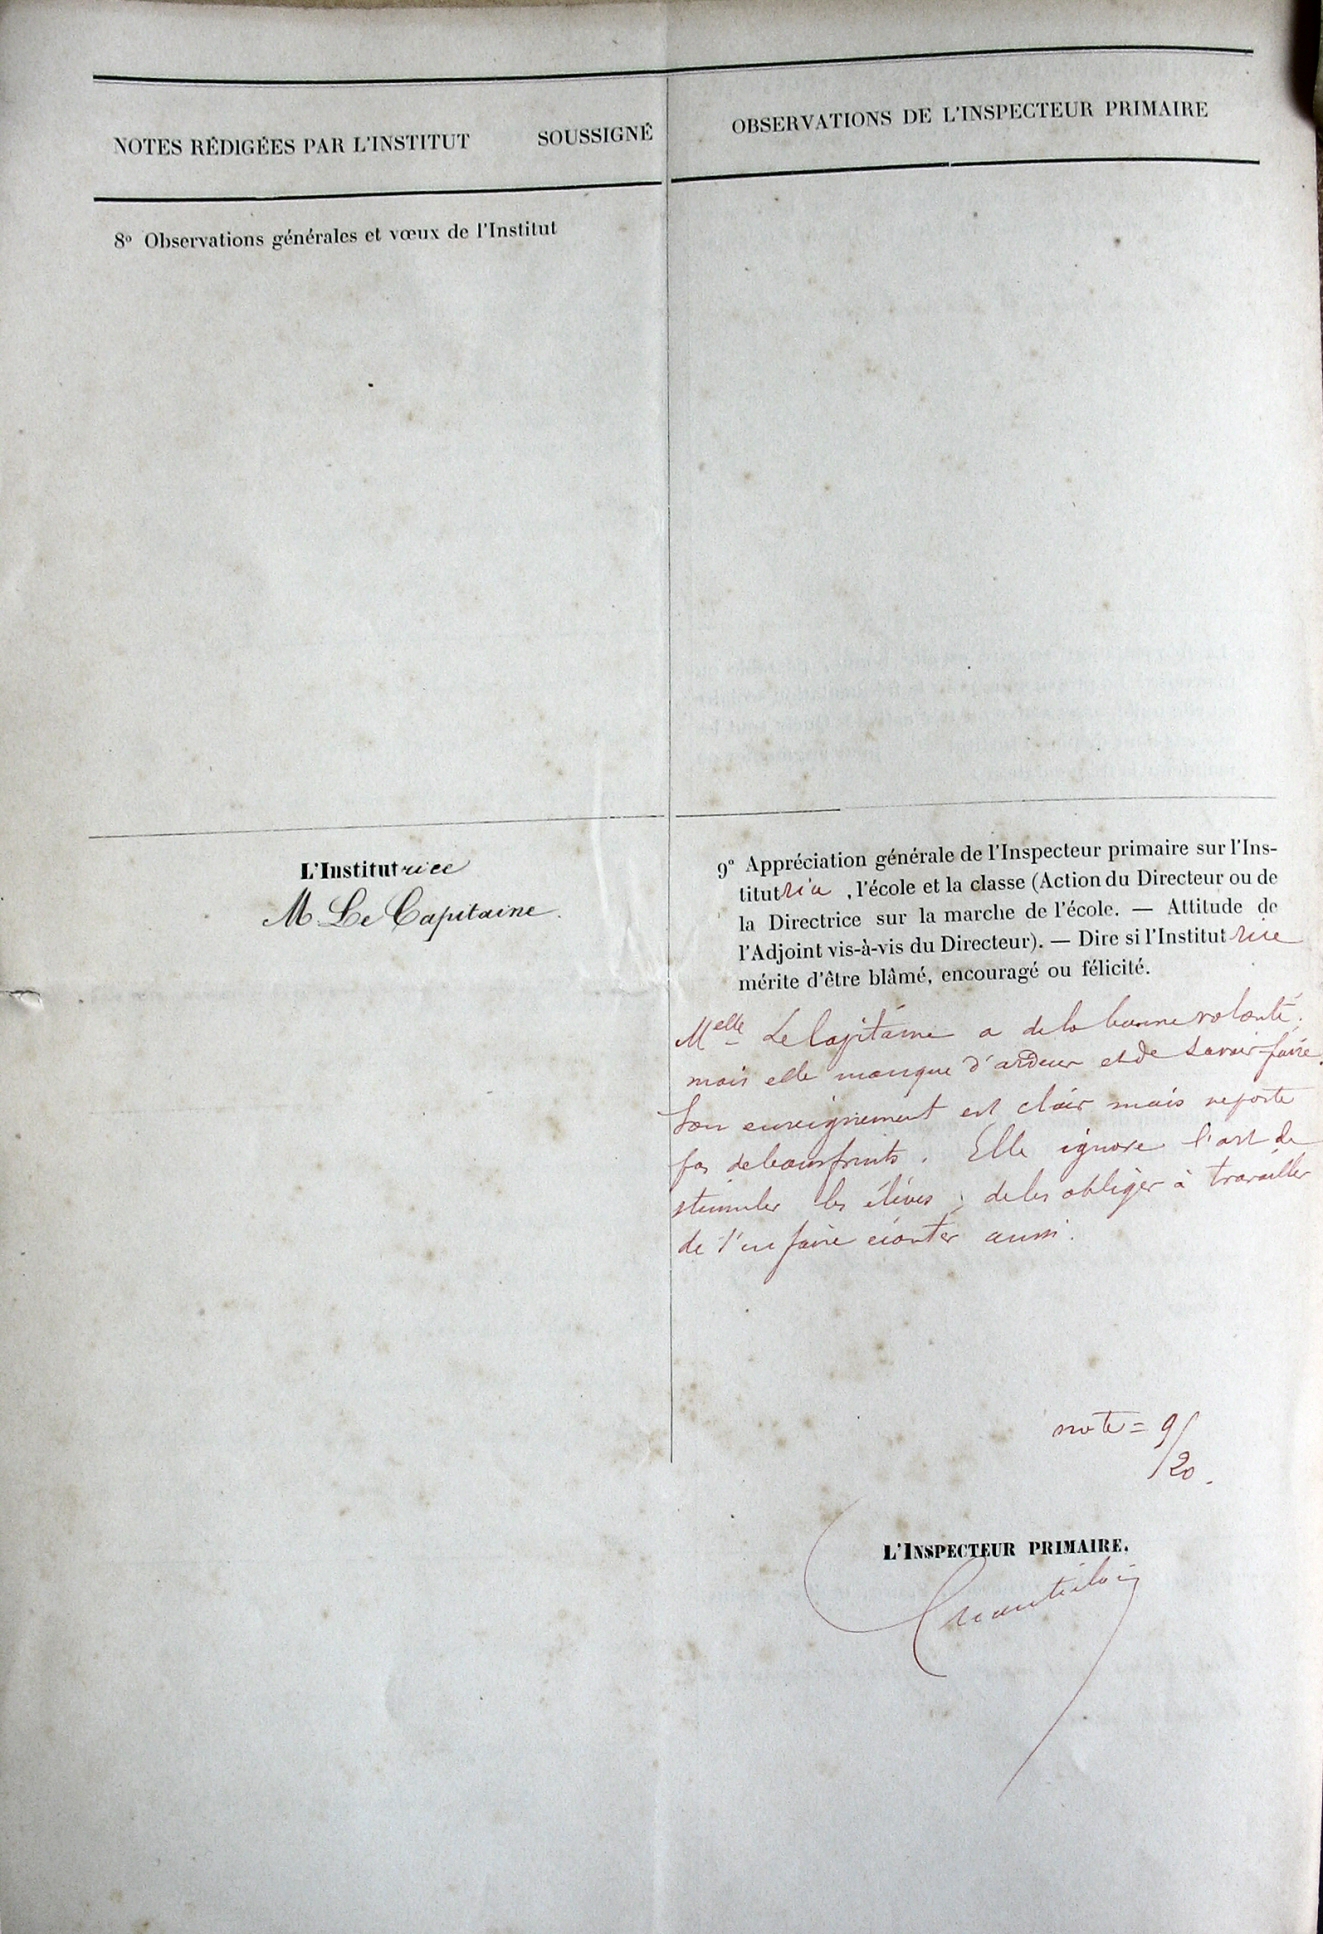 NOTES RÉDIGÉES PAR L'INSTITUT SOUSSIGNÉ
8º Observations générales et vœux de l'Institut
L'Institutrice
M. Le Capitaine.
OBSERVATIONS DE L'INSPECTEUR PRIMAIRE
9º Appréciation générale de l'Inspecteur primaire sur l'Ins-
titutrice, l'école et la classe (Action du Directeur ou de
la Directrice sur la marche de l'école. — Attitude de
l'Adjoint vis-à-vis du Directeur). — Dire si l'Institutrice
mérite d'être blâmé, encouragé ou félicité.
Melle Le Capitaine a de la bonne volonté,
mais elle manque d'ardeur et de savoir-faire.
Son enseignement est clair mais ne porte
pas de bons fruits. Elle ignore l'art de
stimuler les élèves, de les obliger à travailler
de s'en faire écouter aussi.
note = 9/20.
L'INSPECTEUR PRIMAIRE.